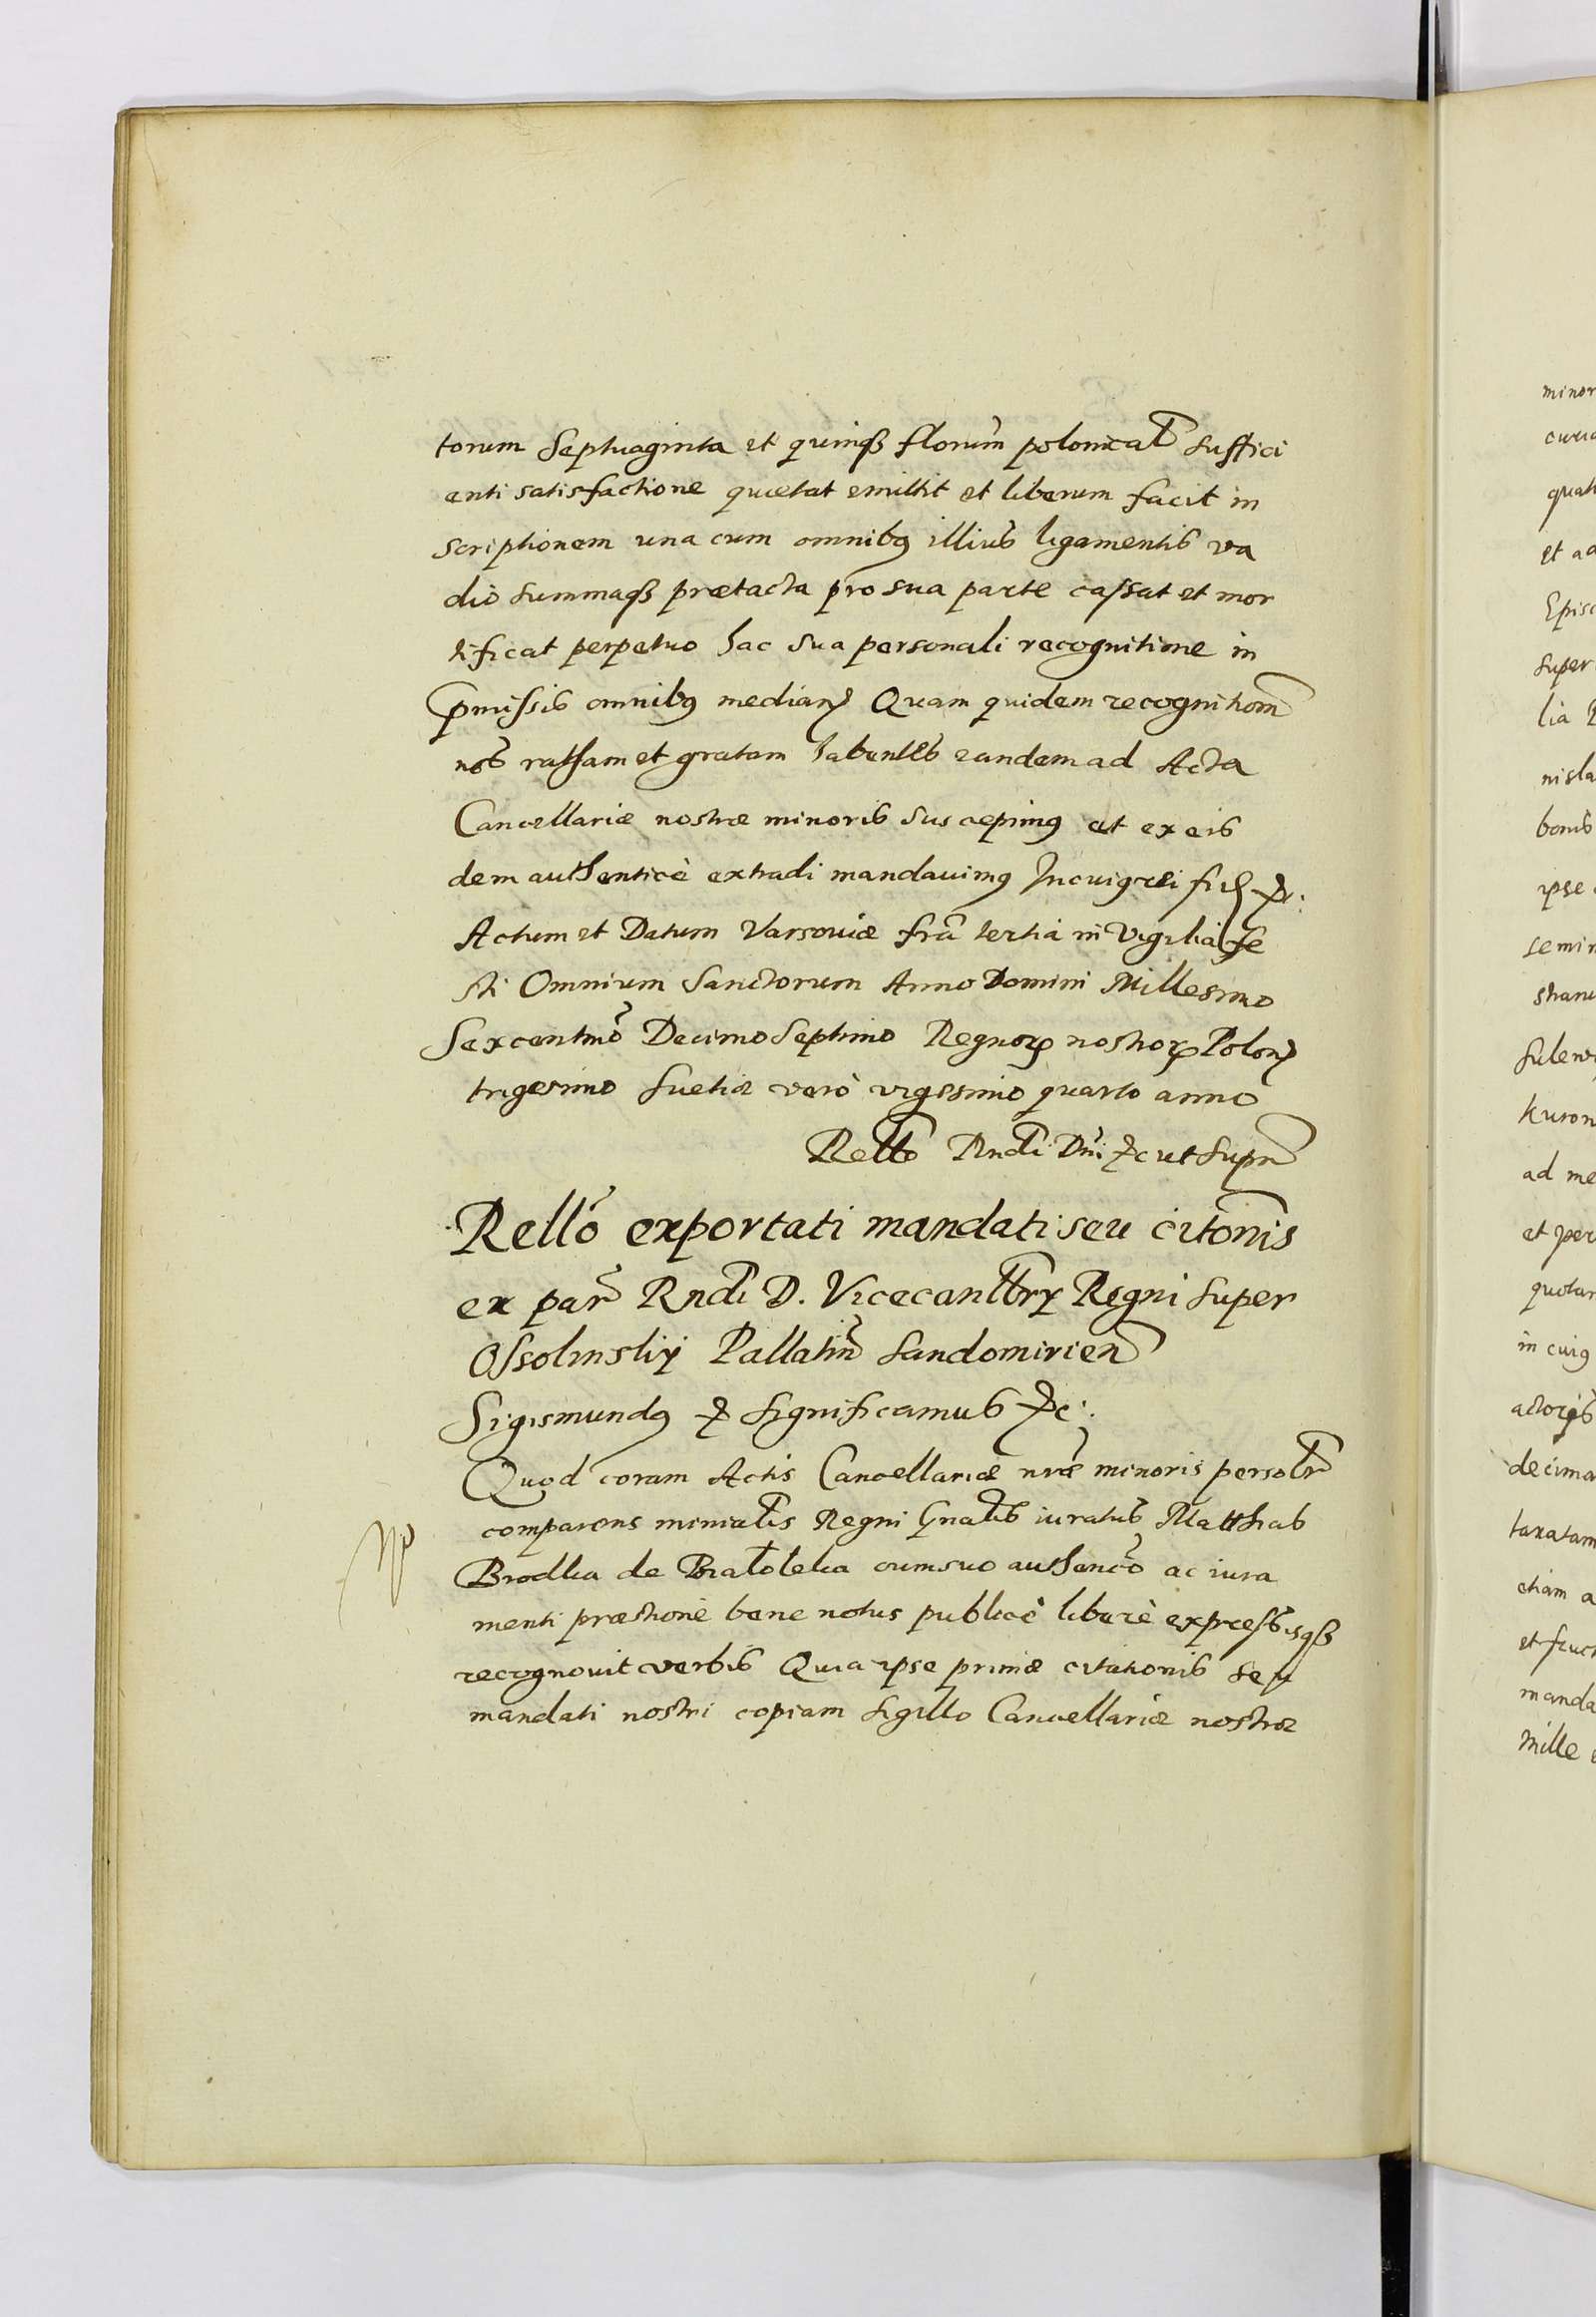 torum Septuaginta et quinqȝ floruᷠm polonicaᷝl suffici
enti satisfactione quietat emittit et liberum facit in
scriptionem una cum omnibꝰ illius ligamentis va
dio summaqȝ prætacta pro sua parte cassat et mor
tificat perpetuo hac sua personali recognitione in
p̄missis omnibꝰ median̄ Quam quidem recognitiom̄
nos ratham et gratam habentes eandem ad Acta
Cancellariæ nostræ minoris suscepimꝰ et ex eis
dem authenticè extradi mandauimꝰ In cuiꝰ rei fid &c:
Actum et Datum Varsouiæ fr̄a tertia in vigilia fe
sti Omnium Sanctorum Anno Domini Millesimo
Sexcentm̄o Decimo Septimo Regnoꝝ nostroꝝ Polon̄
trigesimo Suetiæ verò vigessimo quarto anno
Rello Rndi Dni &c ut supr̄
Rello exportati mandati seu citōnis
ex par̄ Rndi D. Vicecanllrij Regni super
Ossolinskij Pallatin̄ Sandomirien̄
Sigismundꝰ & significamus &c:
Quod coram Actis Cancellariæ nr̄æ minoris persolr̄
comparens minialis Regni Gnalis iuratus Matthias
Brodka de cum suo authenco ac iura
menti præstione bene notus publicè liberè expressisqȝ
recognouit verbis Quia ipse primæ citationis seu
mandati nostri copiam sigillo Cancellariæ nostræ
minor
curia
quat
et ad
Episc
super
lia
nisla
bonis
ipse
semin
stani
sulen
kuron
ad me
et per
quotan
in cuiꝰ
actoris
decima
taxatam
etiam a
et fruct
manda
mille